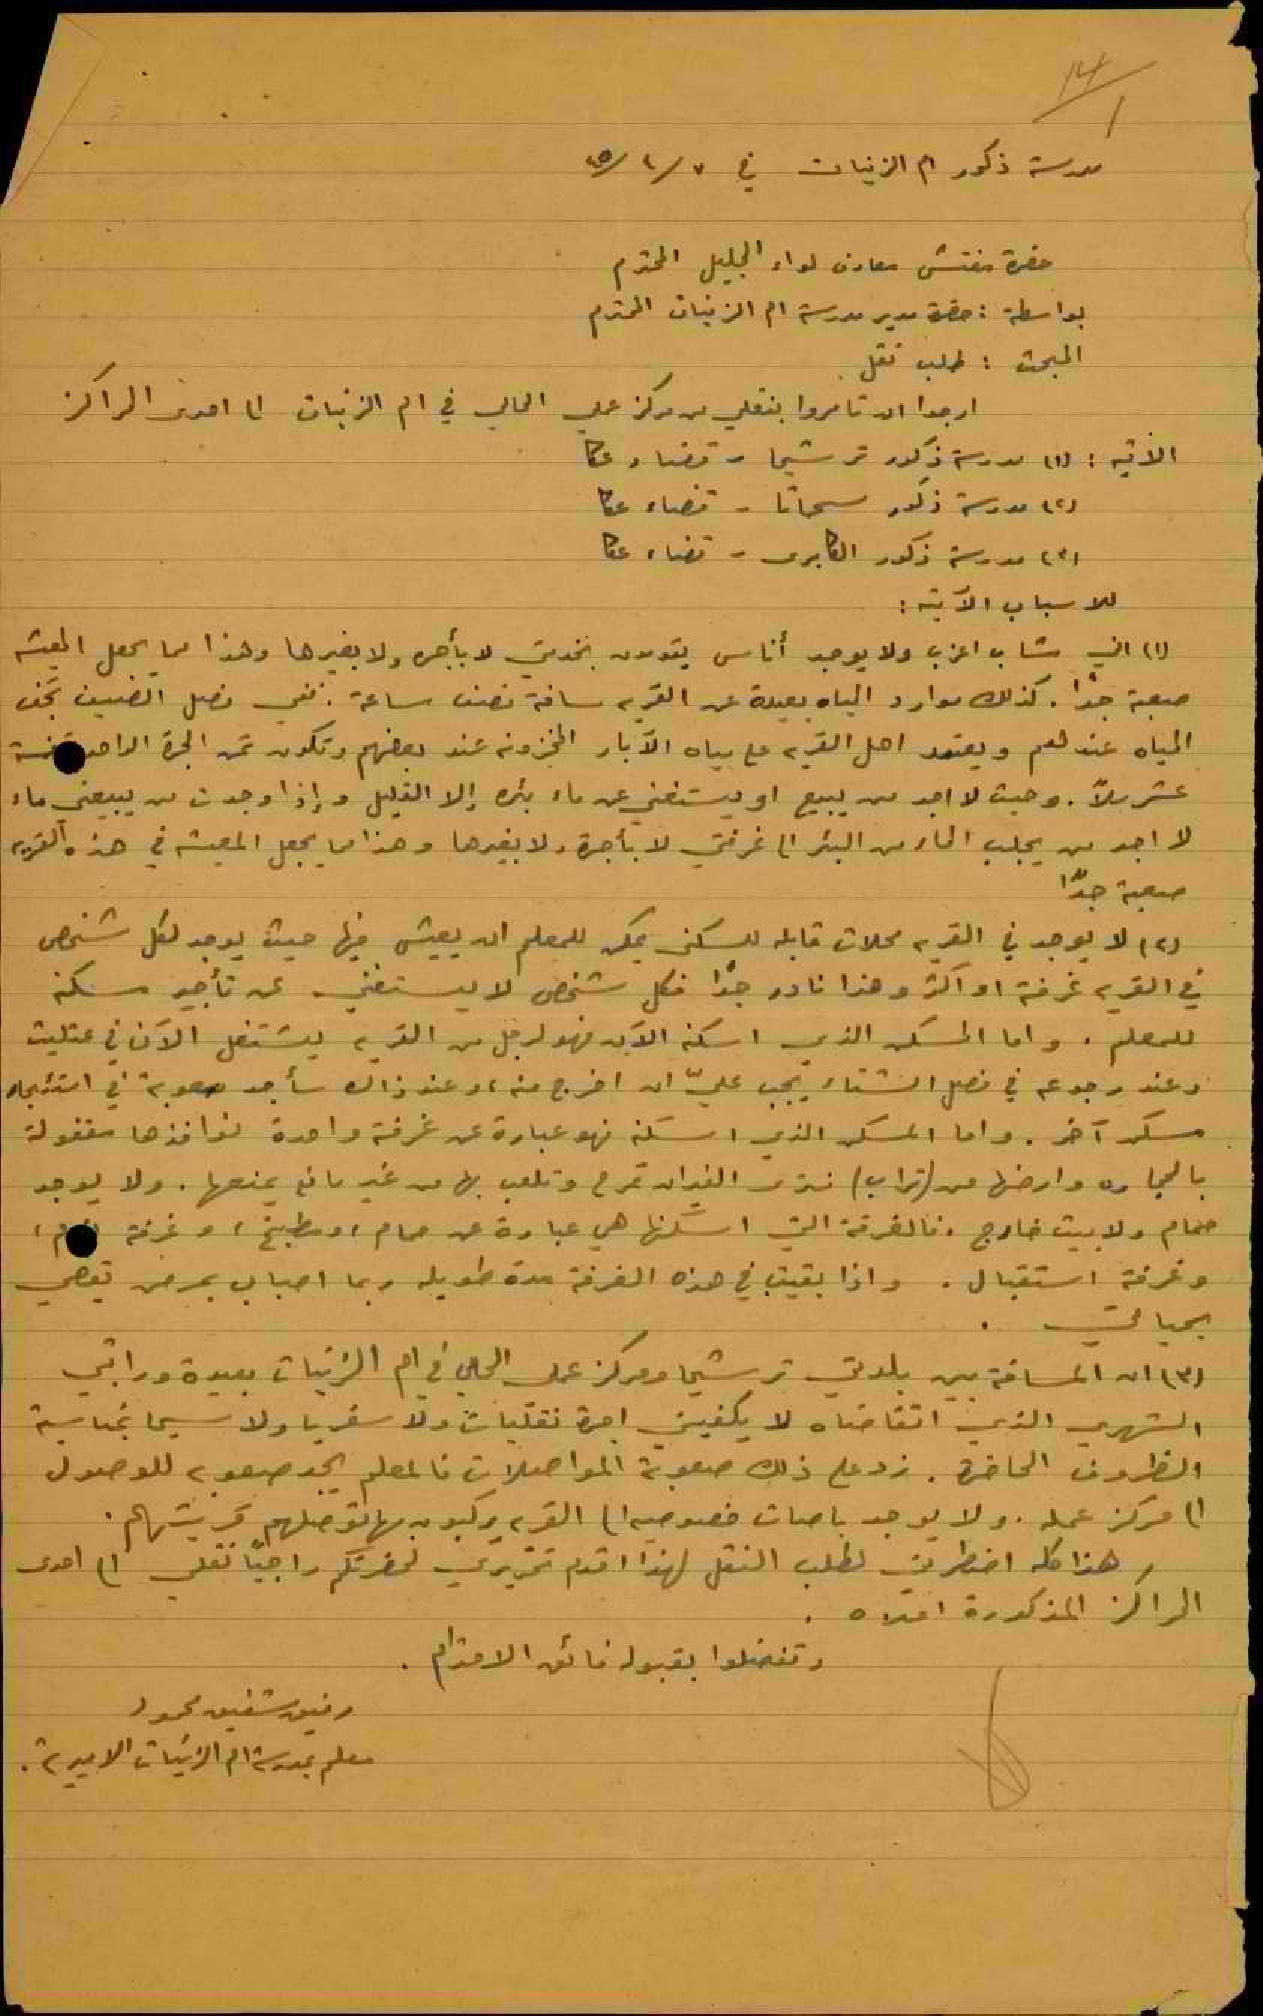 ١٤/١
مدرسة ذكور ام الزينات في ٧/٦/٤٥
حضرة مفتش معارف لواء الجليل المحترم
بواسطة : حضرة مدير مدرسة ام الزينات المحترم
المبحث : طلب نقل
ارجوا ان تأمروا بنقلي من مركز عملي الحالي في ام الزينات الى احدى المراكز
الآتية : (١) مدرسة ذكور ترشيحا - قضاء عكا
(٢) مدرسة ذكور سحماتا - قضاء عكا
(٣) مدرسة ذكور الكابري - قضاء عكا
للاسباب الآتية :
(١) اني شاب اعزب ولا يوجد أناس يقومون بخدمتي لا بأجره ولا بغيرها وهذا مما يجعل المعيشه
صعبة جدًا . كذلك موارد المياه بعيدة عن القريه مسافة نصف ساعة . ففي فصل الصيف تجف
المياه عندهم ويعتمد اهل القريه على مياه الآبار المخزونه عند بعضهم وتكون ثمن الجرة الواحدة خمسة
عشر ملاً . وحيث لا اجد من يبيع او يستغني عن ماء بئره إلا القليل وإذا وجدت من يبيعني ماء
لا اجد من يجلب الماء من البئر الى غرفتي لا بأجرة ولا بغيرها وهذا مما يجعل المعيشه في هذه القريه
صعبة جدًا
(٢) لا يوجد في القريه محلات قابله للسكنى يمكن للمعلم ان يعيش فيها حيث يوجد لكل شخص
في القريه غرفة او اكثر وهذا نادر جدًا فكل شخص لا يستغني عن تأجير مسكنه
للمعلم . واما المسكن الذي اسكنه الآن فهو لرجل من القريه يشتغل الآن في عتليت
وعند رجوعه في فصل الشتاء يجب عليّ ان اخرج منه ، وعند ذاك سأجد صعوبة في استئجار
مسكن آخر . واما المسكن الذي اسكنه فهو عبارة عن غرفة واحدة نوافذها مقفولة
بالحجاره وارضها من (تراب) فترى الفيران تمرح وتلعب بها من غير مانع يمنعها . ولا يوجد
حمام ولا بيت خارج . فالغرفة التي اسكنها هي عبارة عن حمام ، ومطبخ ، وغرفة
وغرفة استقبال . واذا بقيت في هذه الغرفة مدة طويله ربما اصاب بمرض يقضي
بحياتي .
(٣) ان المسافة بين بلدتي ترشيحا ومركز عملي الحالي في ام الزينات بعيدة وراتبي
الشهري الذي اتقاضاه لا يكفيني اجرة نقليات ولا سفريا ولا سيما بمناسبة
الظروف الحاضرة . زد على ذلك صعوبة المواصلات فالمعلم يجد صعوبه للوصول
الى مركز عمله . ولا يوجد باصات خصوصيه الى القريه يركبون بها توصلهم قريتهم .
هذا كله اضطرني لطلب النقل لهذا اقدم تحريري لحضرتكم راجيًا نقلي الى احدى
المراكز المذكورة اعلاه .
وتفضلوا بقبول فائق الاحترام .
رفيق شفيق محمود
معلم بمدرسة ام الزينات الاميرية .